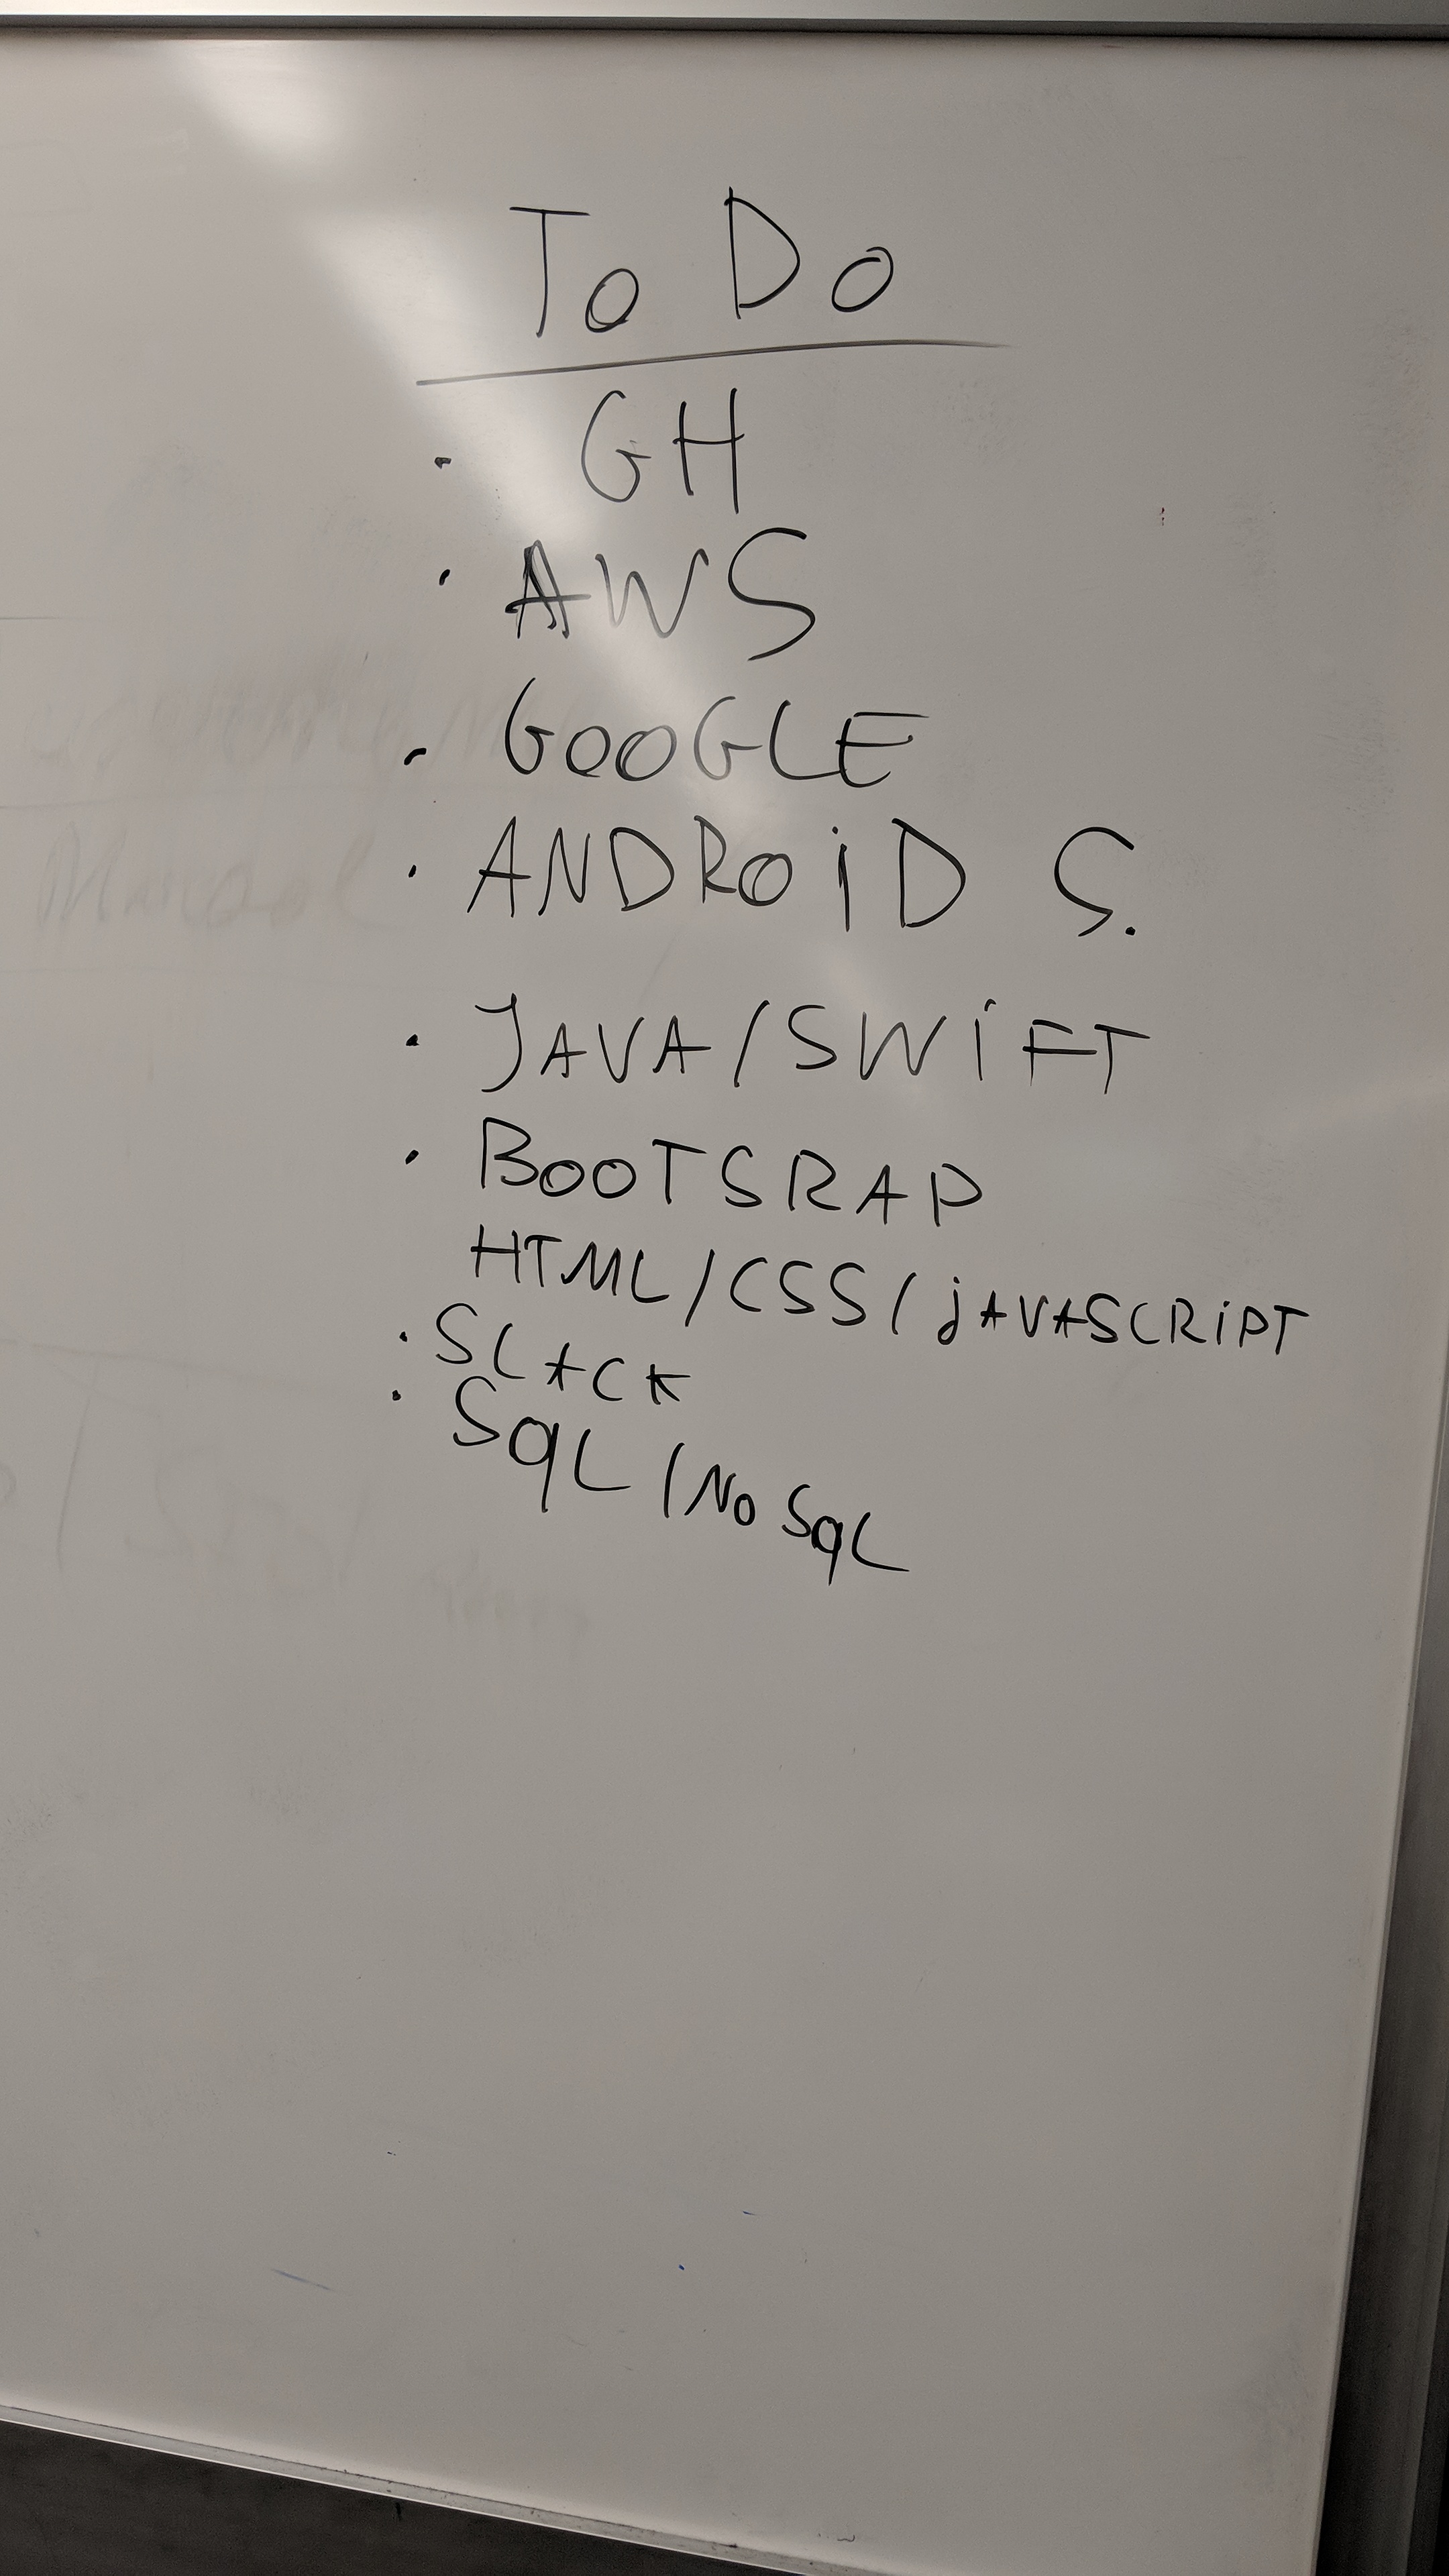 To Do
· GH
· AWS
· GOOGLE
· ANDROiD S.
· JAVA/SWiFT
· BOOTSRAP
HTML/CSS/jAVASCRiPT
· SLACK
· SqL/No SqL